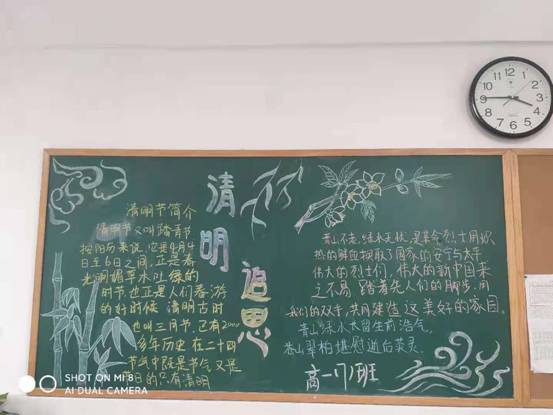 清明追思
清明节简介
清明节又叫踏青节
按阳历来说 它是4月4
日至6日之间,正是春
光明媚草木吐绿的
时节也正是人们春游
的好时候 清明古时
也叫三月节,已有2000
多年历史 在二十四
节气中既是节气又是
节日的只有清明
青山不老,绿水无枝,是革命烈士用炽
热的鲜血换取了国家的安宁与太平
伟大的烈士们,伟大的新中国来
之不易 踏着先人们的脚步,用
我们的双手,共同建造这美好的家园。
青山绿水太留生前浩气。
苍山翠柏堪慰逝后英灵.
高一(7)班
12 1 2 3 4 5 6 7 8 9 10 11
SHOT ON MI 8
AI DUAL CAMERA